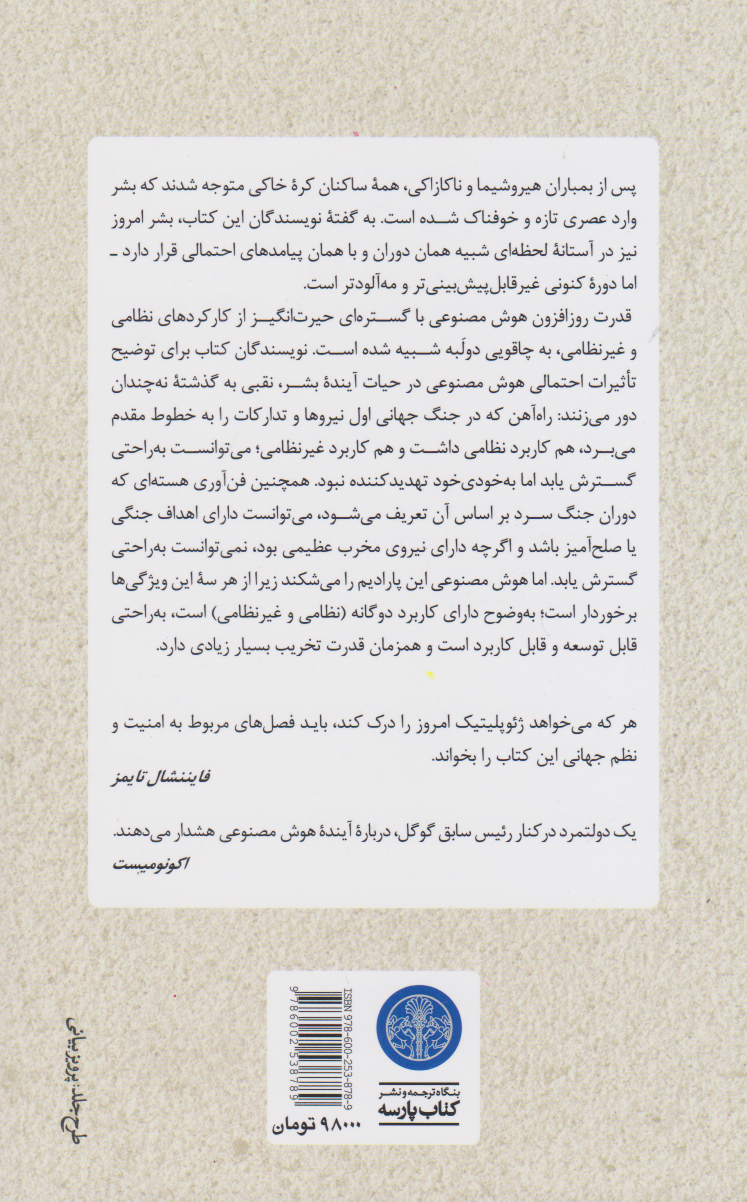 پس از بمباران هیروشیما و ناکازاکی، همهٔ ساکنان کرهٔ خاکی متوجه شدند که بشر
وارد عصری تازه و خوفناک شده است. به گفتهٔ نویسندگان این کتاب، بشر امروز
نیز در آستانهٔ لحظه‌ای شبیه همان دوران و با همان پیامدهای احتمالی قرار دارد ـ
اما دورهٔ کنونی غیرقابل‌پیش‌بینی‌تر و مه‌آلودتر است.
قدرت روزافزون هوش مصنوعی با گستره‌ای حیرت‌انگیز از کارکردهای نظامی
و غیرنظامی، به چاقویی دولَبه شبیه شده است. نویسندگان کتاب برای توضیح
تأثیرات احتمالی هوش مصنوعی در حیات آیندهٔ بشر، نقبی به گذشتهٔ نه‌چندان
دور می‌زنند: راه‌آهن که در جنگ جهانی اول نیروها و تدارکات را به خطوط مقدم
می‌برد، هم کاربرد نظامی داشت و هم کاربرد غیرنظامی؛ می‌توانست به‌راحتی
گسترش یابد اما به‌خودی‌خود تهدیدکننده نبود. همچنین فن‌آوری هسته‌ای که
دوران جنگ سرد بر اساس آن تعریف می‌شود، می‌توانست دارای اهداف جنگی
یا صلح‌آمیز باشد و اگرچه دارای نیروی مخرب عظیمی بود، نمی‌توانست به‌راحتی
گسترش یابد. اما هوش مصنوعی این پارادیم را می‌شکند زیرا از هر سهٔ این ویژگی‌ها
برخوردار است؛ به‌وضوح دارای کاربرد دوگانه (نظامی و غیرنظامی) است، به‌راحتی
قابل توسعه و قابل کاربرد است و همزمان قدرت تخریب بسیار زیادی دارد.
هر که می‌خواهد ژئوپلیتیک امروز را درک کند، باید فصل‌های مربوط به امنیت و
نظم جهانی این کتاب را بخواند.
فایننشال تایمز
یک دولتمرد در کنار رئیس سابق گوگل، دربارهٔ آیندهٔ هوش مصنوعی هشدار می‌دهند.
اکونومیست
بنگاه ترجمه و نشر
کتاب پارسه
ISBN 978-600-253-878-9
9 786002 538789
۹۸۰۰۰ تومان
طرح جلد: پرویز بیانی